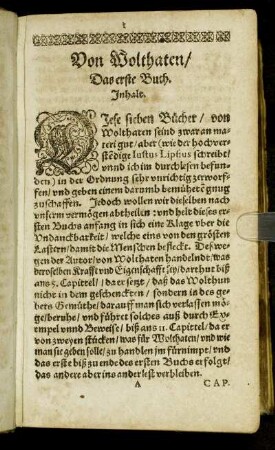 1
Von Wolthaten/
Das erste Buch.
Inhalt.
Diese sieben Bücher / von
Wolthaten seind zwar an ma-
teri gut / aber (wie der hochver-
stēdige Iustus Lipsius schreibt/
unnd ich im durchlesen befun-
den) in der Ordnung sehr unrichtig zerworf-
fen / und geben einem darumb bemühetē gnug
zuschaffen. Jedoch wollen wir dieselben nach
unserm vermögen abtheiln: und helt dieses er-
sten Buchs anfang in sich eine Klage uber die
Undanckbarkeit / welche eins von den grösten
Lastern / damit die Menschen befleckt. Deßwe-
gen der Autor / von Wolthaten handelndt / was
deroselben Krafft und Eigenschafft sey / darthut biß
ans 5. Capittel / da er setzt / daß das Wolthun
nicht in dem geschencktē / sondern in des ge-
bers Gemüthe / darauff man sich verlassen mö-
ge / beruhe / und führet solches auß durch Ex-
empel unnd Beweise / biß ans 11. Capittel / da er
von zweyen stücken / was für Wolthaten / und wie
man sie geben solle / zu handlen jm fürnimpt / und
das erste biß zu ende des ersten Buchs erfolgt /
das andere aber ins ander lest verbleiben.
A CAP.